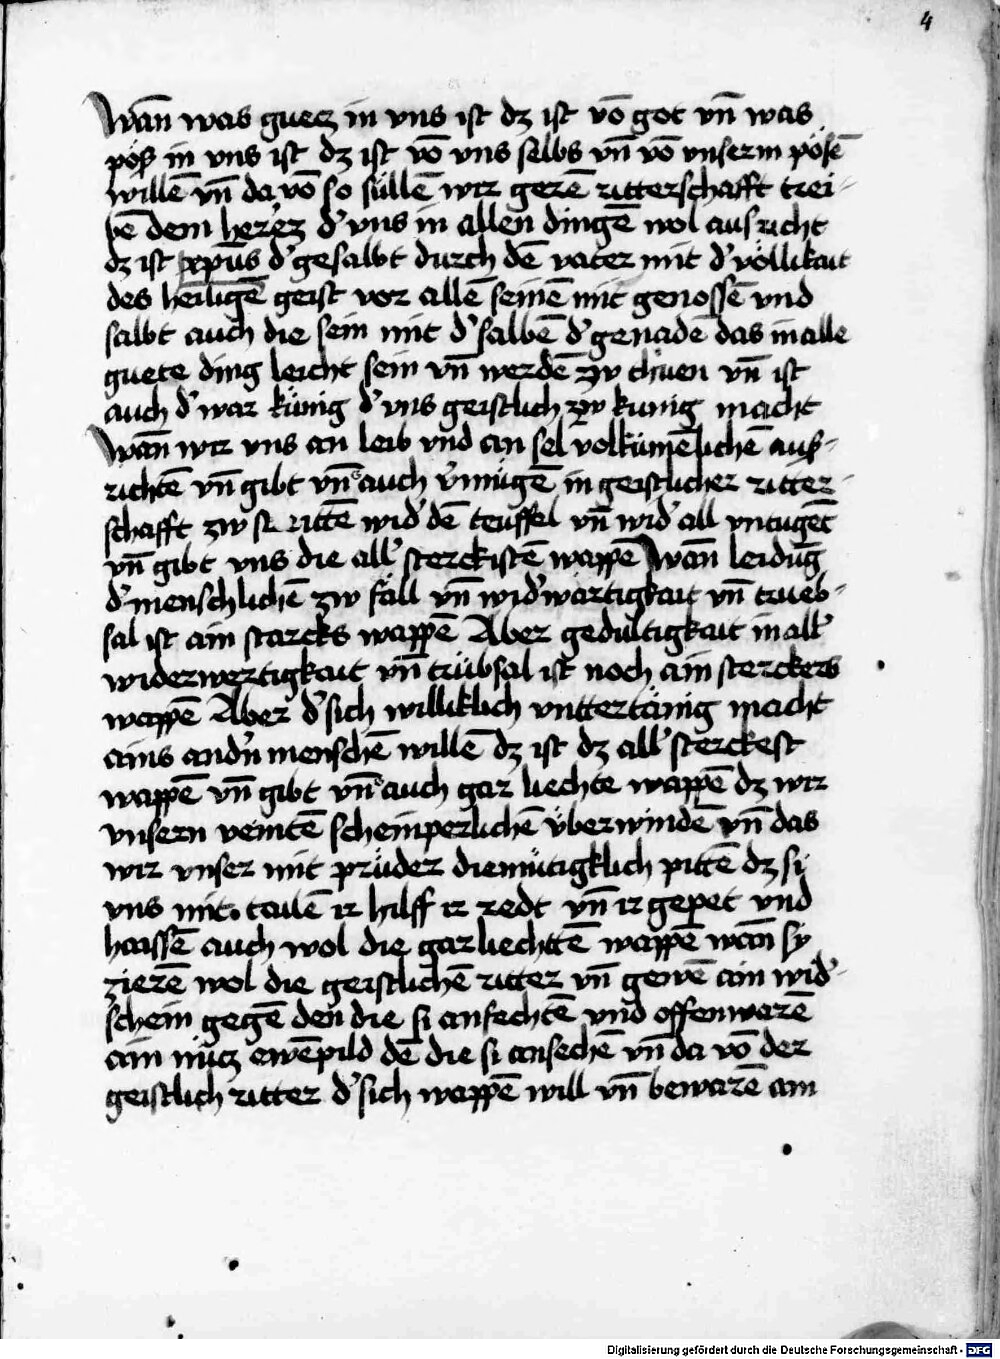 4
Wañ was guecz in vns ist dz ist võ got vñ was
pöß in vns ist dz ist võ vns selbs vñ võ vnserm pösē
willē vñ da võ so süllē wir gerē ritterschafft trei-
bē dem herrē d' vns in allen dingē wol ausricht
dz ist xp̄us d' gesalbt durch dē vater mit d' völlikait
des heiligē geist vor allē seinē mit genossē vnd
salbt auch die sein mit d' salbē d' genadē das in alle
guete ding leicht sein vñ werdē zw thuen vñ ist
auch d' war künig d' vns geistlich zw kunig macht
Wañ wir vns an leib vnd an sel volkümēlichē aus-
richtē vñ gibt vñs auch v'mügē in geistlicher ritter-
schafft zw st rittē wid' dē teuffel vñ wid' all vntugēt
vñ gibt vns die all' sterckistē wappē Wañ leidūg
d' menschlichē zw fäll vñ wid'wärtigkait vñ trueb-
sal ist ain starcks wappē Aber gedultigkait in all'
widerwertigkait vñ trübsal ist noch ain sterckers
wappē Aber d' sich williklich vnttertänig macht
ains and'n menschē willē dz ist dz all' sterckest
wappē vñ gibt vñs auch gar liechte wappē dz wir
vnsern veintē scheinperlichē überwindē vñ das
wir vnser mit prüder diemütigklich pittē dz si
vns mit tailē ir hilff ir redt vñ ir gepet vnd
haissē auch wol die gar liechttē wappē wañ sy
zierē wol die geistlichē ritter vñ gewē ain wid'-
schein gegē den die si anfechtē vnd offenwarē
ain nücz ewēpild dē die si ansechē vñ da võ der
geistlich ritter d' sich wappē will vñ bewarē am
Digitalisierung gefördert durch die Deutsche Forschungsgemeinschaft - DFG